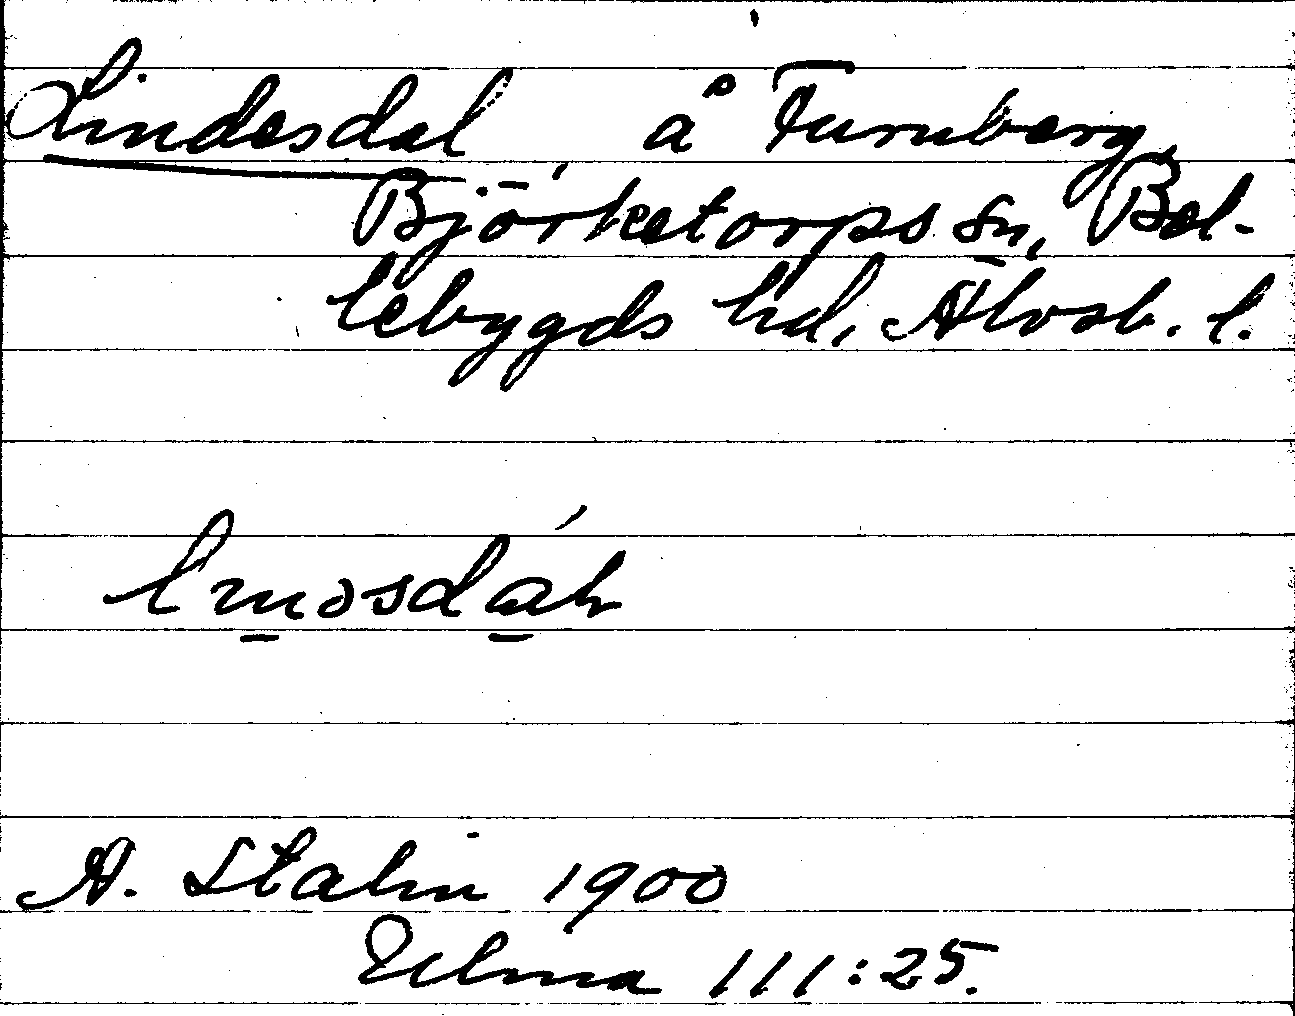 Lindesdal, å Furuberg,
Björketorps sn, Bol-
lebygds hd, Älvsb. l.
A. Stalin 1900
Ulma 111:25.